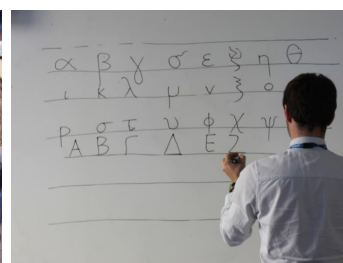 α β γ σ ε η θ
ι κ λ μ ν ξ ο
ρ σ τ υ φ χ ψ
Α Β Γ Δ Ε